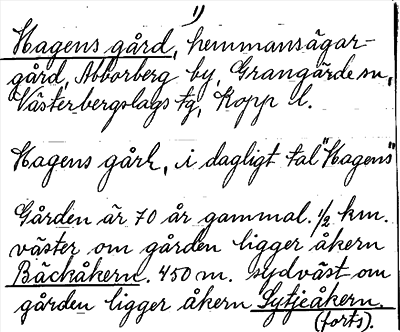 1)
Hagens gård, hemmansägar-
gård, Abborberg by, Grangärde sn,
Västerbergslags tg, Kopp l.
Hagens gård, i dagligt tal "Hagens"
Gården är 70 år gammal. 1/2 km.
väster om gården ligger åkern
Bäckåkern. 450 m. sydväst om
gården ligger åkern Sytjeåkern.
(forts).